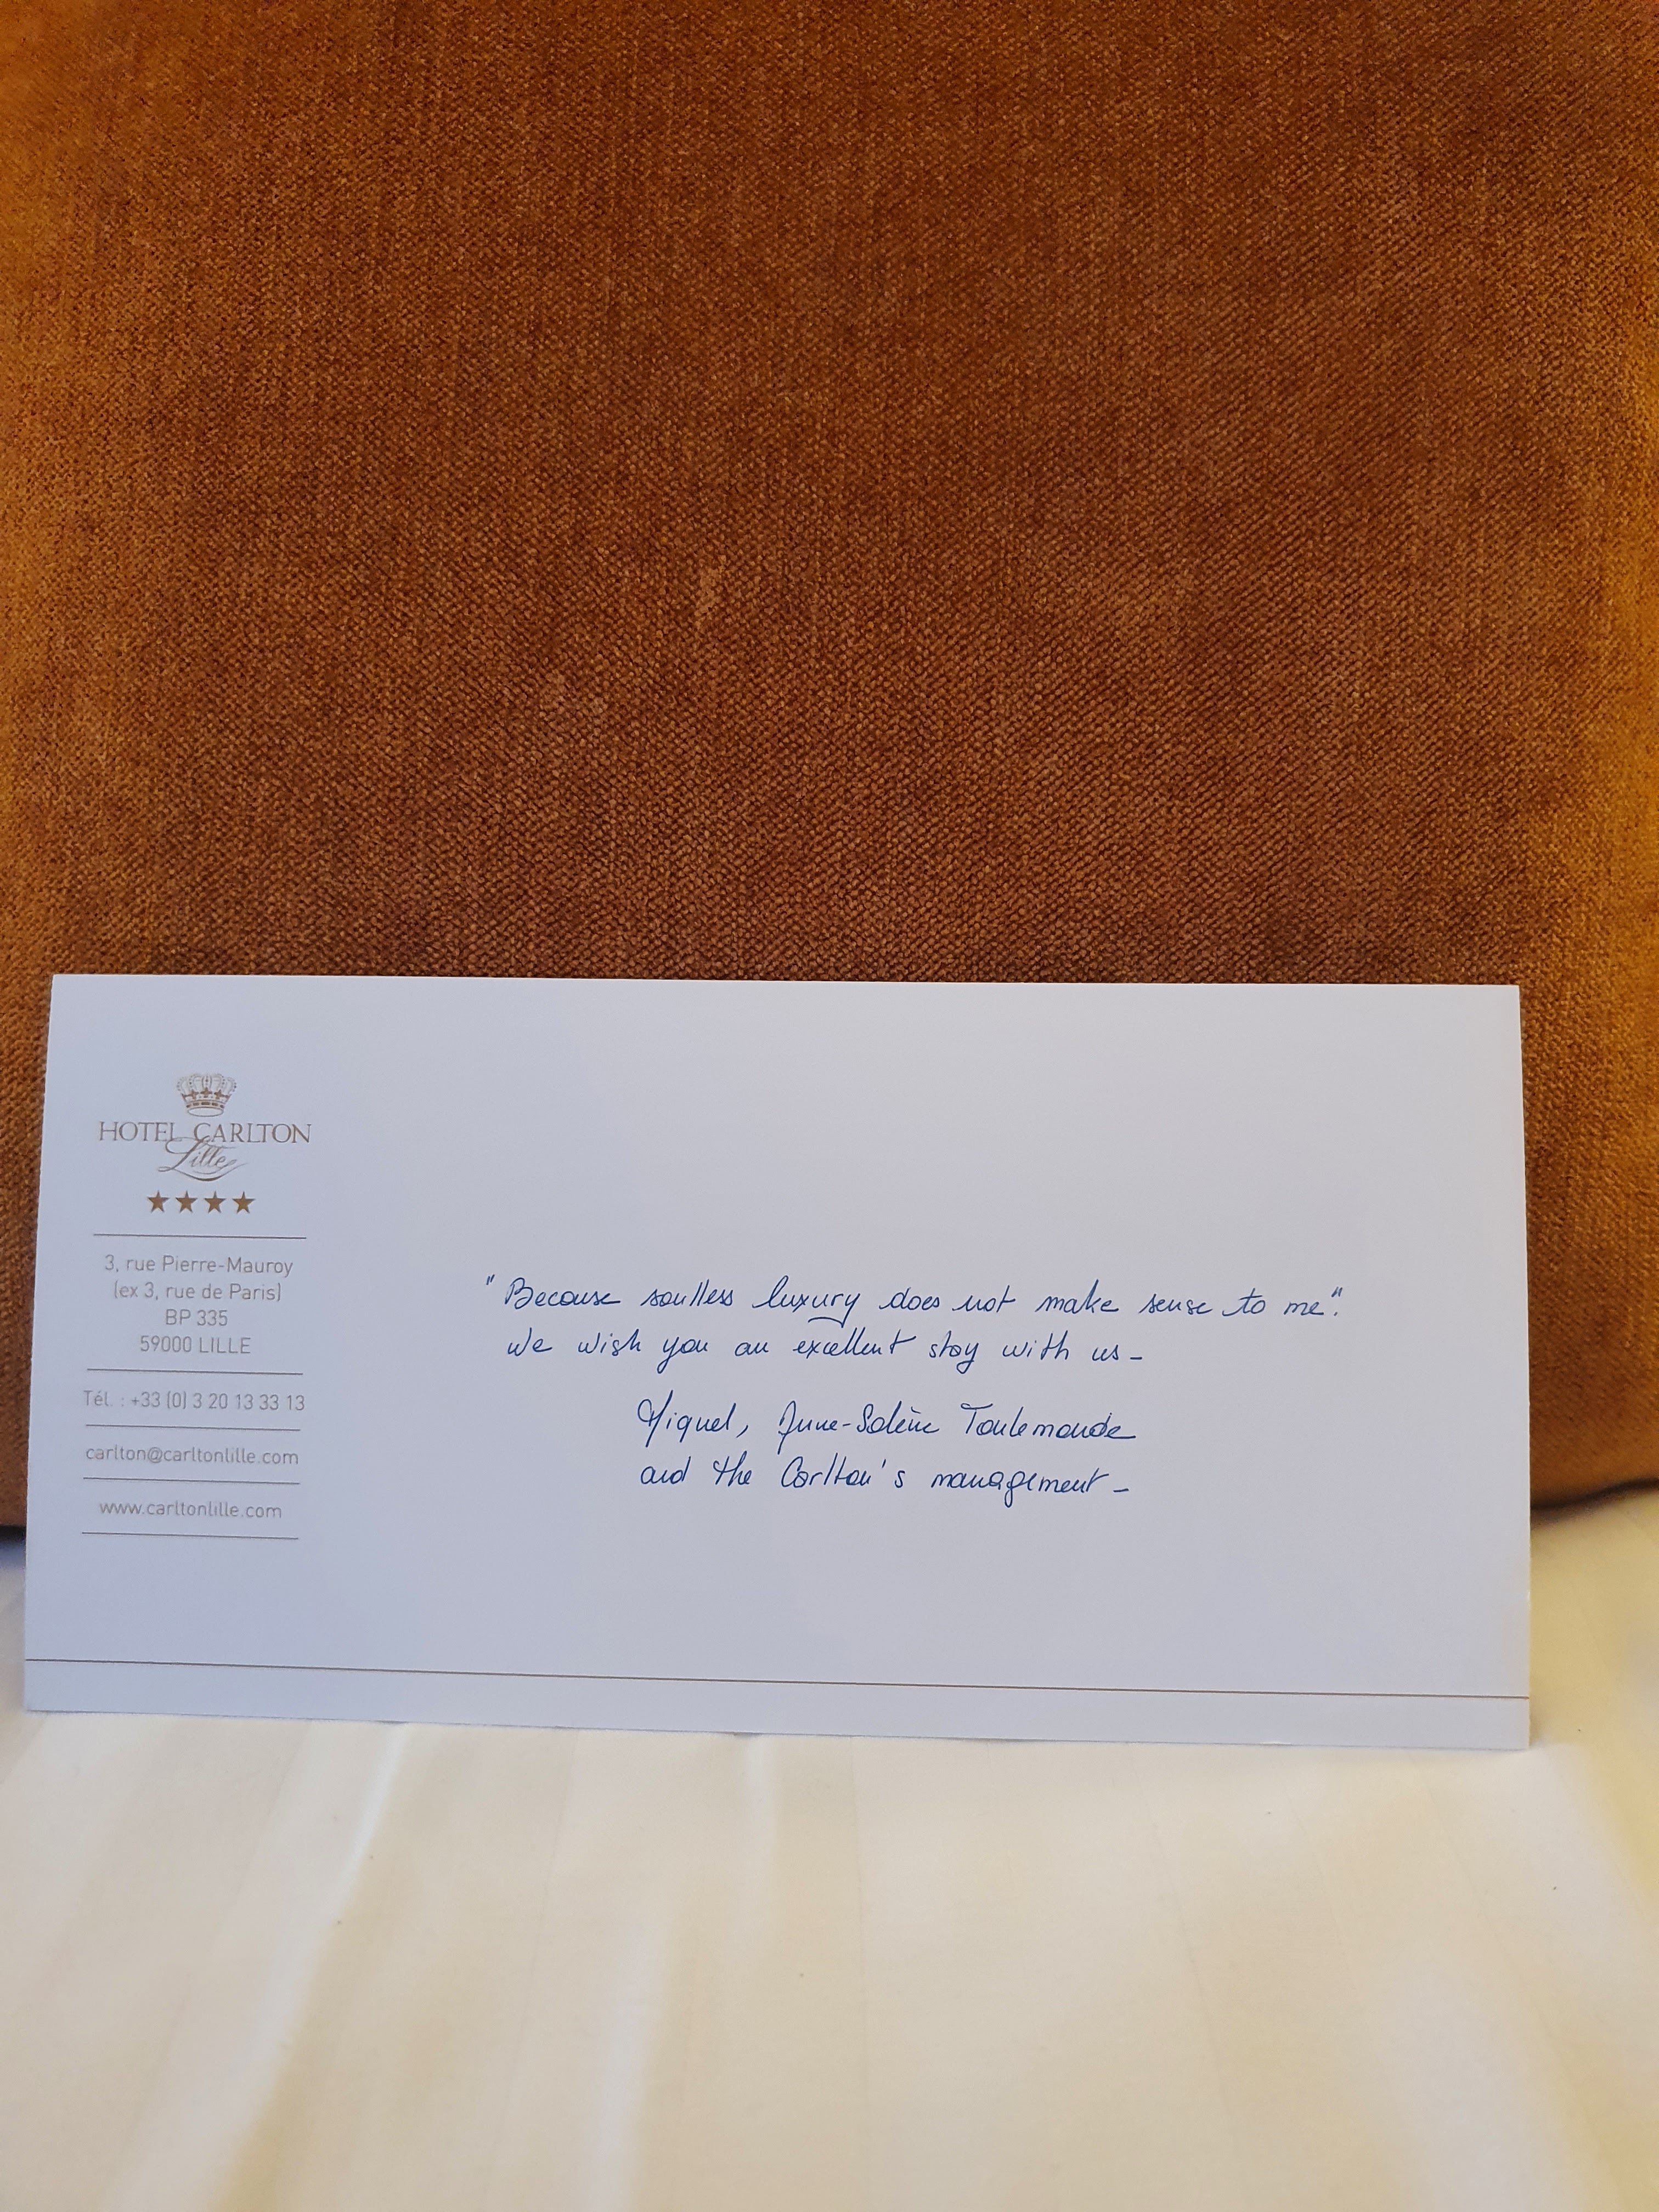 HOTEL CARLTON
Lille
★★★★
3, rue Pierre-Mauroy
(ex 3, rue de Paris)
BP 335
59000 LILLE
Tél. : +33 (0) 3 20 13 33 13
carlton@carltonlille.com
www.carltonlille.com
"Because soulless luxury does not make sense to me".
We wish you an excellent stay with us -
Miguel, Anne-Solène Toulemonde
and the Carlton's management -